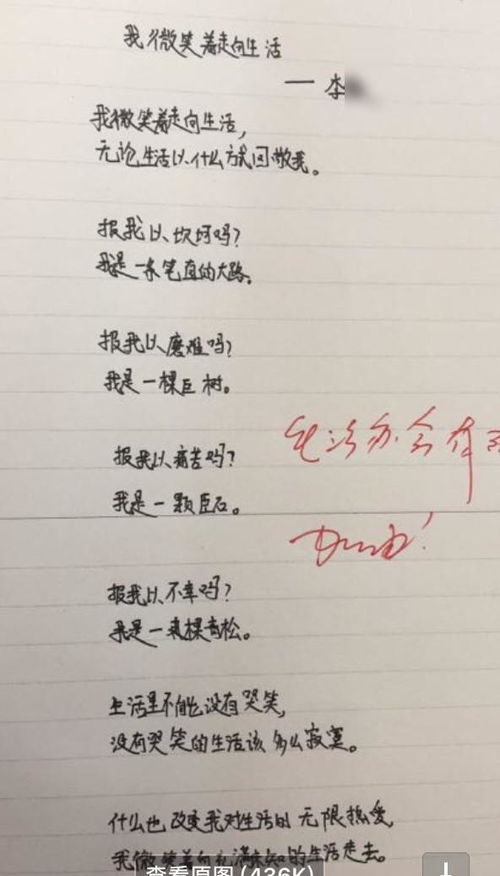 我微笑着走向生活
——李
我微笑着走向生活，
无论生活以什么方式回敬我。
报我以坎坷吗？
我是一条笔直的大路。
报我以磨难吗？
我是一棵巨树。
报我以痛苦吗？
我是一颗巨石。
报我以不幸吗？
我是一棵青松。
生活里不能没有哭笑，
没有哭笑的生活该多么寂寞。
什么也改变我对生活的无限热爱，
我微笑着向充满未知的生活走去。
生活亦会有
加油！
查看原图(436K)